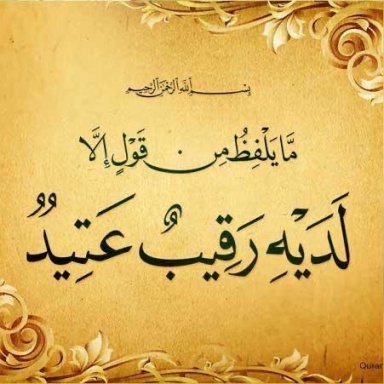 بِسْمِ اللَّهِ الرَّحْمَٰنِ الرَّحِيمِ
مَّا يَلْفِظُ مِن قَوْلٍ إِلَّا
لَدَيْهِ رَقِيبٌ عَتِيدٌ
Quran